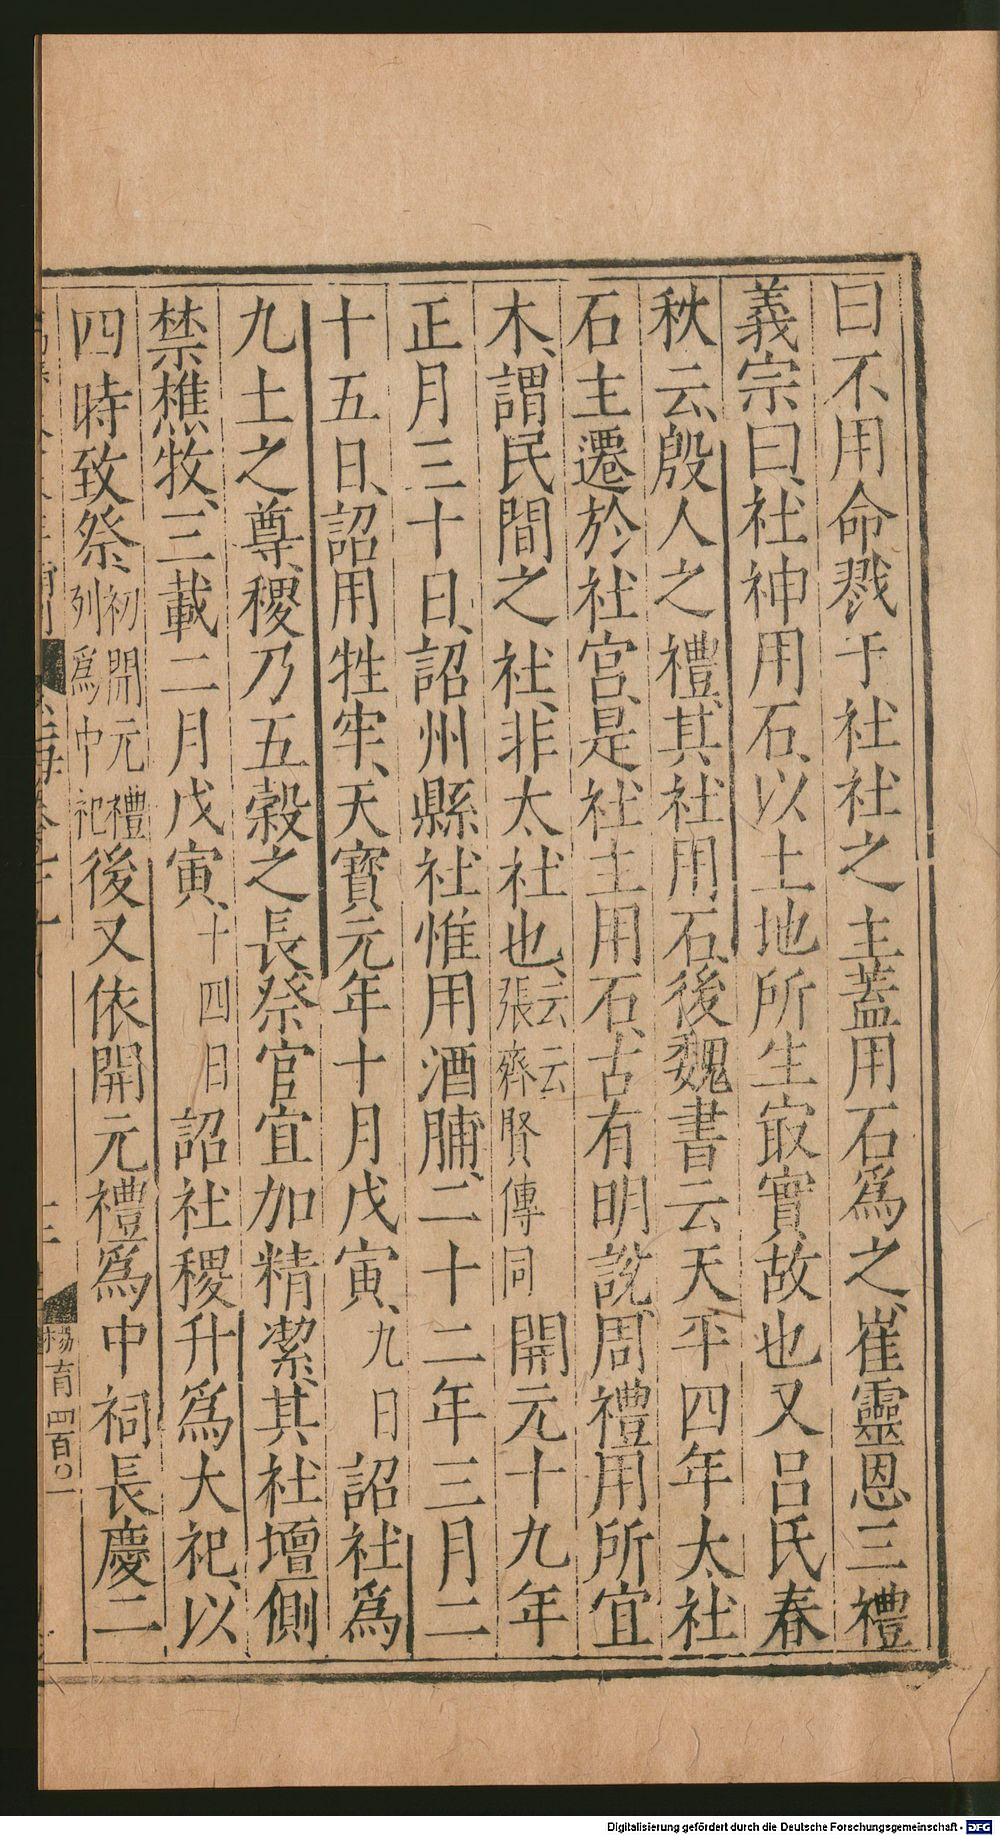 曰不用命戮于社社之主蓋用石爲之崔靈恩三禮
義宗曰社神用石以土地所生㝡實故也又呂氏春
秋云殷人之禮其社用石後魏書云天平四年太社
石主遷於社宮是社主用石古有明說周禮用所宜
木謂民間之社非太社也云云張齊賢傳同開元十九年
正月三十日詔州縣社惟用酒脯二十二年三月二
十五日詔用牲牢天寶元年十月戊寅九日詔社爲
九土之尊稷乃五穀之長祭官宜加精潔其社壇側
禁樵牧三載二月戊寅十四日詔社稷升爲大祀以
四時致祭初開元禮列爲中祀後又依開元禮爲中祠長慶二
楊育四百〇一
Digitalisierung gefördert durch die Deutsche Forschungsgemeinschaft - DFG